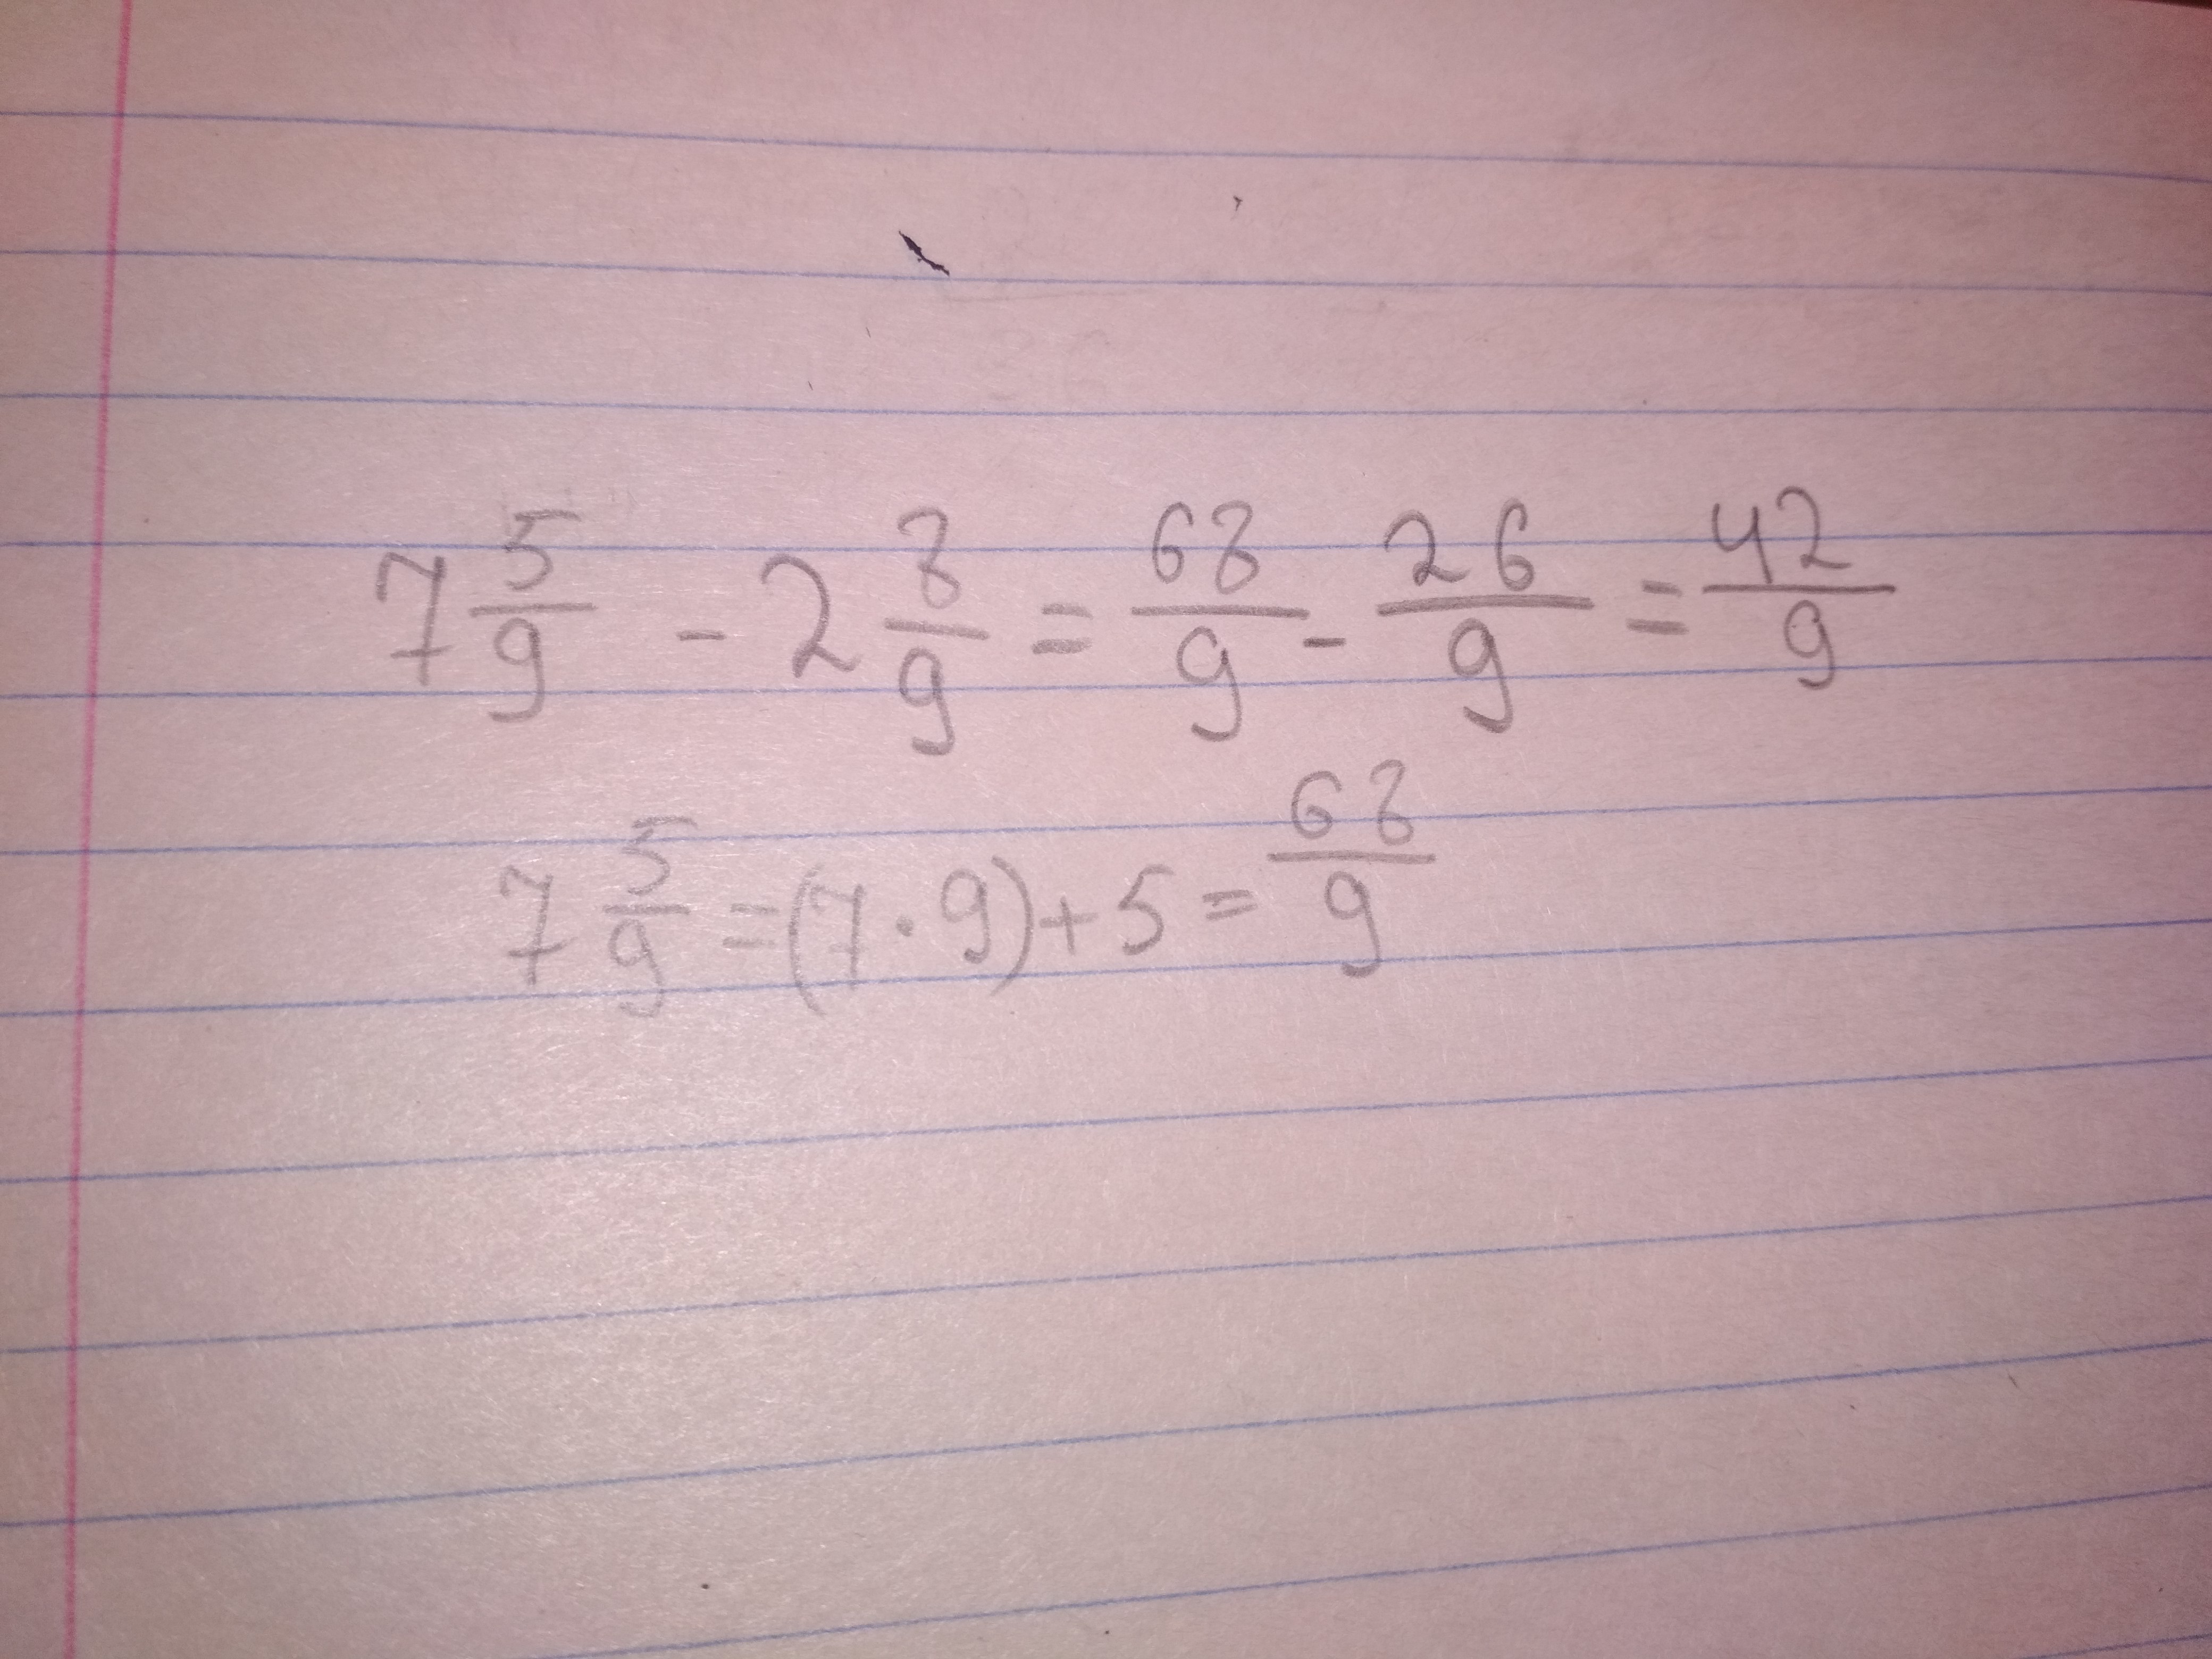 7 5/9 - 2 8/9 = 68/9 - 26/9 = 42/9
7 5/9 = (7 · 9) + 5 = 68/9